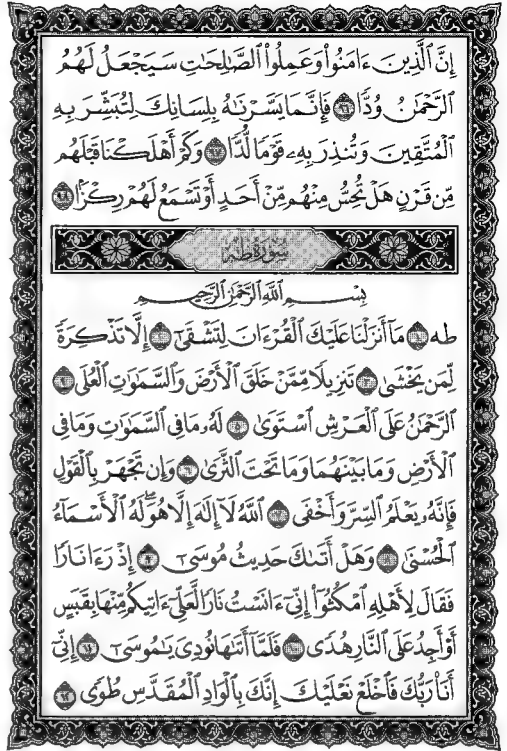 إِنَّ ٱلَّذِينَ ءَامَنُوا۟ وَعَمِلُوا۟ ٱلصَّـٰلِحَـٰتِ سَيَجْعَلُ لَهُمُ
ٱلرَّحْمَـٰنُ وُدًّا ٩٦ فَإِنَّمَا يَسَّرْنَـٰهُ بِلِسَانِكَ لِتُبَشِّرَ بِهِ
ٱلْمُتَّقِينَ وَتُنذِرَ بِهِۦ قَوْمًا لُّدًّا ٩٧ وَكَمْ أَهْلَكْنَا قَبْلَهُم
مِّن قَرْنٍ هَلْ تُحِسُّ مِنْهُم مِّنْ أَحَدٍ أَوْ تَسْمَعُ لَهُمْ رِكْزًۢا ٩٨
سُورَةُ طه
بِسْمِ ٱللَّهِ ٱلرَّحْمَـٰنِ ٱلرَّحِيمِ
طه ١ مَآ أَنزَلْنَا عَلَيْكَ ٱلْقُرْءَانَ لِتَشْقَىٰٓ ٢ إِلَّا تَذْكِرَةً
لِّمَن يَخْشَىٰ ٣ تَنزِيلًا مِّمَّنْ خَلَقَ ٱلْأَرْضَ وَٱلسَّمَـٰوَٰتِ ٱلْعُلَى ٤
ٱلرَّحْمَـٰنُ عَلَى ٱلْعَرْشِ ٱسْتَوَىٰ ٥ لَهُۥ مَا فِى ٱلسَّمَـٰوَٰتِ وَمَا فِى
ٱلْأَرْضِ وَمَا بَيْنَهُمَا وَمَا تَحْتَ ٱلثَّرَىٰ ٦ وَإِن تَجْهَرْ بِٱلْقَوْلِ
فَإِنَّهُۥ يَعْلَمُ ٱلسِّرَّ وَأَخْفَى ٧ ٱللَّهُ لَآ إِلَـٰهَ إِلَّا هُوَ ۖ لَهُ ٱلْأَسْمَآءُ
ٱلْحُسْنَىٰ ٨ وَهَلْ أَتَىٰكَ حَدِيثُ مُوسَىٰٓ ٩ إِذْ رَءَا نَارًا
فَقَالَ لِأَهْلِهِ ٱمْكُثُوٓا۟ إِنِّىٓ ءَانَسْتُ نَارًا لَّعَلِّىٓ ءَاتِيكُم مِّنْهَا بِقَبَسٍ
أَوْ أَجِدُ عَلَى ٱلنَّارِ هُدًى ١٠ فَلَمَّآ أَتَىٰهَا نُودِىَ يَـٰمُوسَىٰٓ ١١ إِنِّىٓ
أَنَا۠ رَبُّكَ فَٱخْلَعْ نَعْلَيْكَ ۖ إِنَّكَ بِٱلْوَادِ ٱلْمُقَدَّسِ طُوًى ١٢